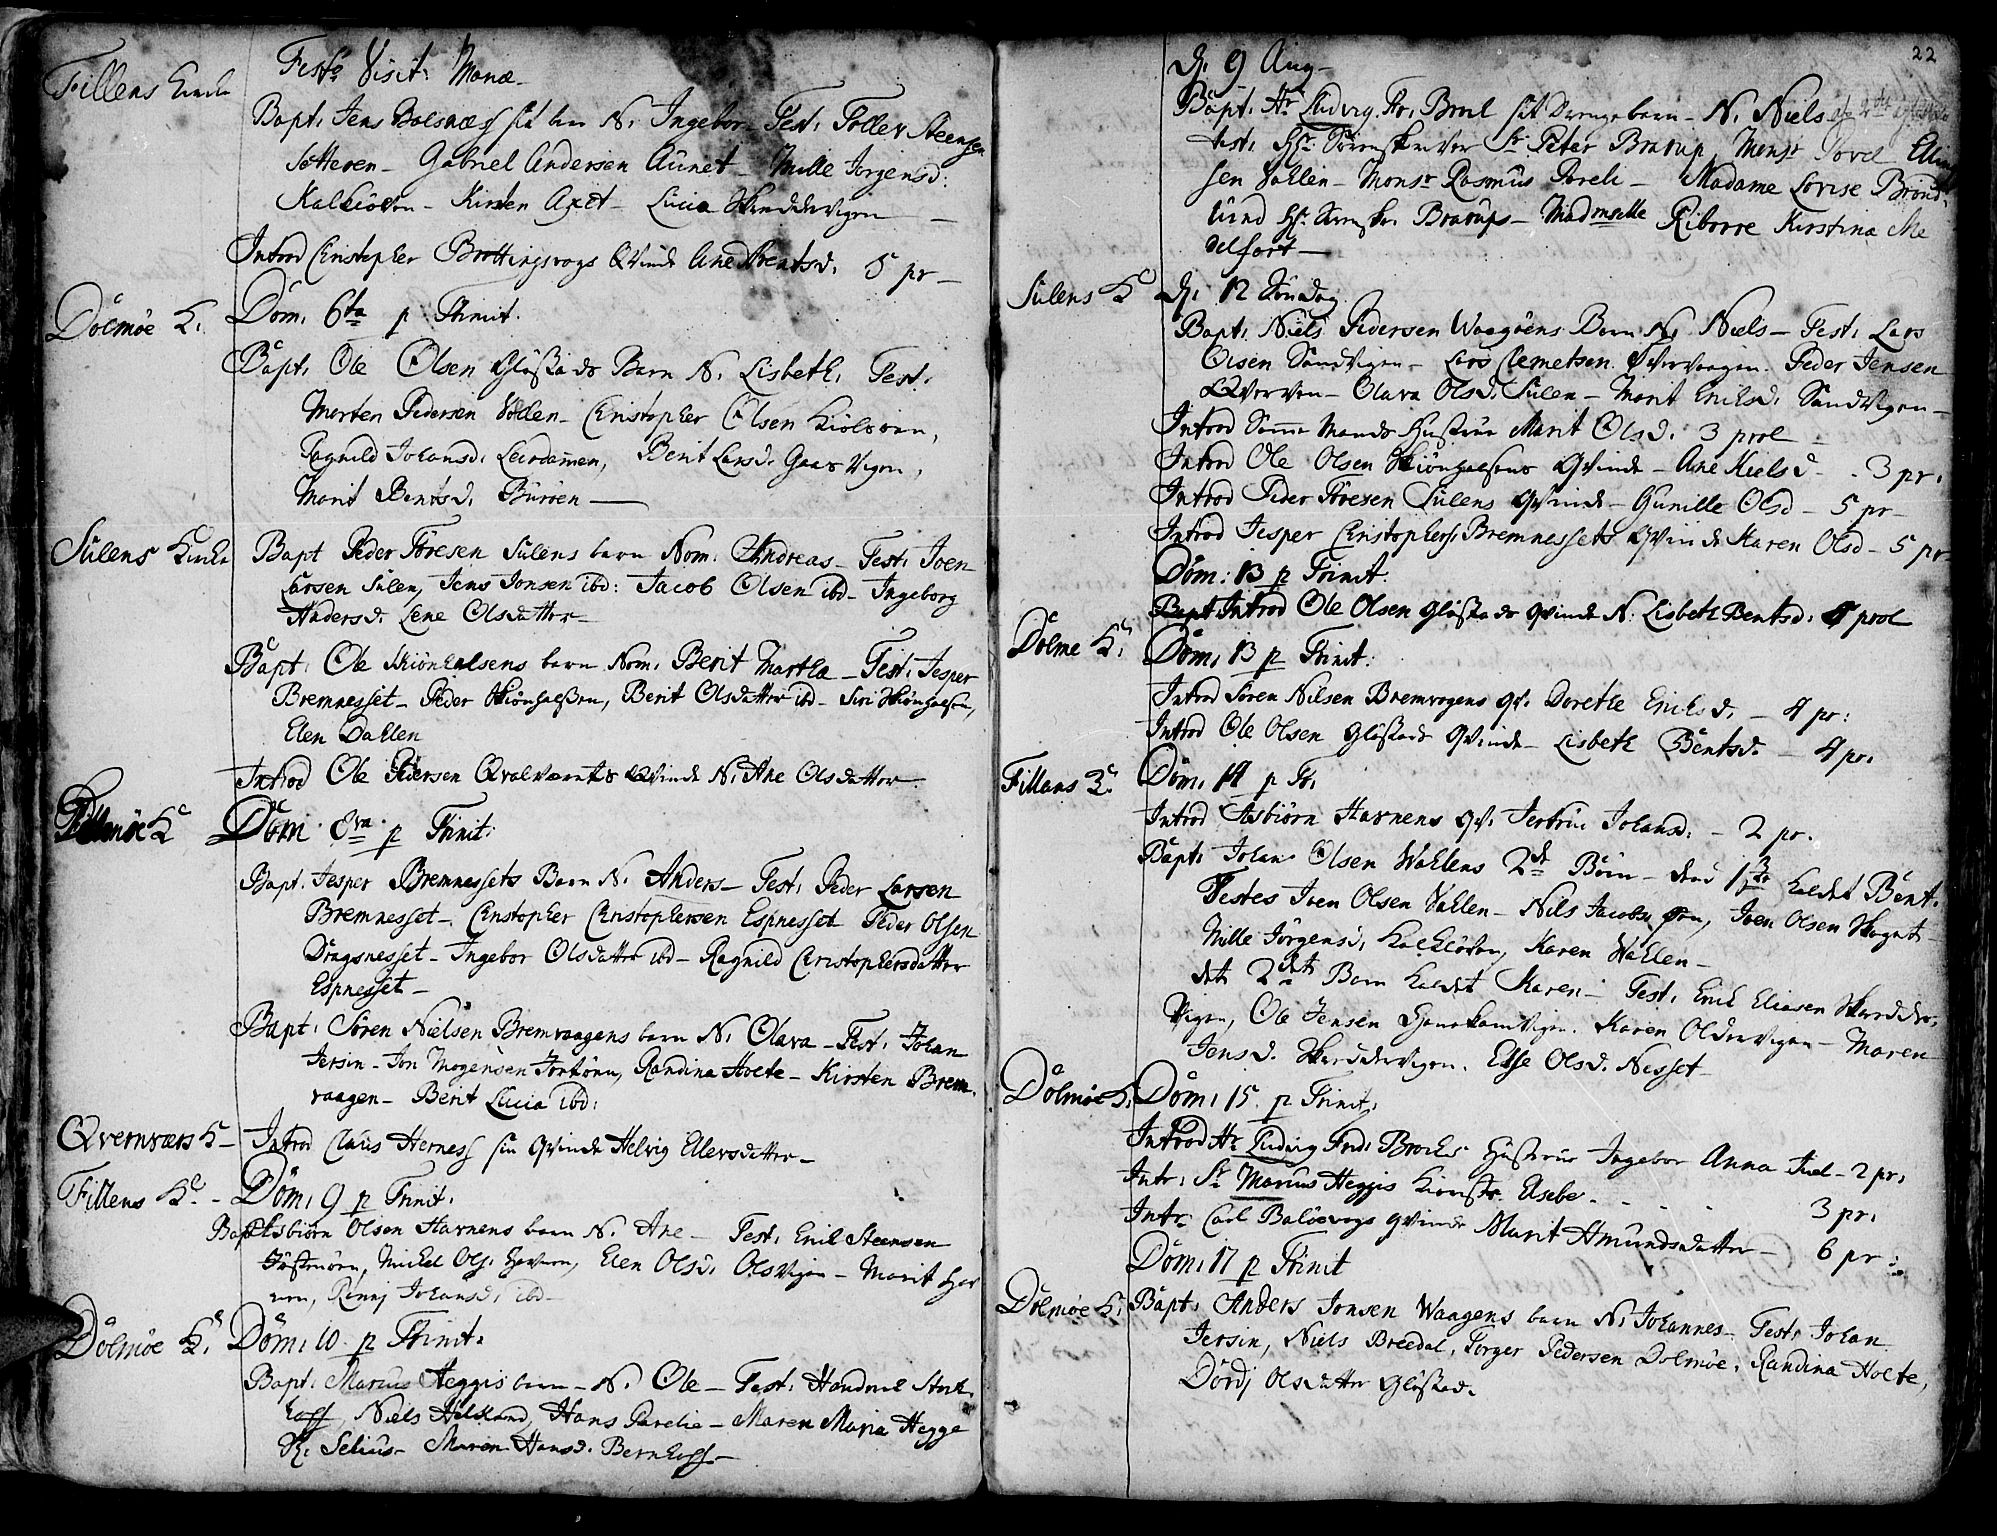 Fillens Kirche
Festo Visit: Mariæ
Bapt. Jens Balsnæs sit barn N. Ingebor Test: Foller Steensen
Setteren - Gabriel Andersen Aunet - Mille Jörgensd:
Kalkloven - Kirsten Axet - Lucia
Introd Christopher Brottingsvogs Qvinde Ane Arentsd. 5 pr
Dolmöe K.
Dom. 6ta p Trinit.
Bapt. Ole Olsen Glöstads Barn N. Lisbeth. Test.
Morten Pedersen Vollen - Christopher Olsen Kiölsöen,
Ragnild Johansd. Leirdammen, Berit Larsd. Gaasvigen,
Marit Bentsd. Buröen
Sulens Kirche
Bapt Peder Toresen Sulens barn Nom: Andreas - Test. Joen
Larsen Sulen, Jens Jonsen ibd: Jacob Olsen ibd - Ingeborg
Andersd. Lene Olsdatter
Bapt. Ole Skiönhalsens barn Nom. Berit Martha - Test. Jesper
Bremnesset - Peder Skiönhalsen, Berit Olsdatter ibd - Siri Skiönhalsen,
Elen Dahlen
Introd Ole Pedersen Qvalværnets Qvinde N. Ane Olsdatter
Dolmöe K
Dom. 8va p Trinit:
Bapt. Jesper Bremnessets Barn N. Anders - Test. Peder Larsen
Bremnesset - Christopher Christophersen Espnesset Peder Olsen
Dragsnesset - Ingebor Olsdatter ibd - Ragnild Christophersdatter
Espnesset -
Bapt. Sören Nielsen Bremvaagens barn N. Olava - Test. Johan
Jersin - Jon Mogensen, Randina Holte - Kirsten Brem
vaagen - Berit Lucia ibd.
Qvernværs K -
Introd Claus Herness sin Qvinde Helvig Ellersdatter -
Fillens K -
Dom. 9 p Trinit.
Bapt. Asbiörn Olsen Havnens barn N. Ane - Test. Erik Steensen
Mickel Ols. Havnen, Elen Olsd. Olsvigen - Marit Hav
nen, Johansd. ibd -
Dolmöe K.
Dom. 10 p Trinit.
Bapt. Marius Hegges barn - N. Ole - Test. Hendrick Stork
hoff, Niels Hetland, Hans Parelie - Maren Maria Hegge
K. Selius - Maren Hansd. Bernhoff -
22
D. 9 Aug -
Bapt. Hr Ludvig Fr. Brocl sit Drengebarn - N. Niels
test. Hr Sörenskriver Sr Peter Brarup, Monsr Povel Elling
sen Vahlen - Monsr Rasmus Pareli - Madame Lovise Brönd
lund Hr Sörenskr. Brarups - Madmselle Riborre Kirstina Me
delfart -
Sulens K
D. 12 Söndag
Bapt. Niels Pedersen Waagöens Barn N. Niels - Test. Lars
Olsen Sandvigen - Lars Clemetsen Peder Jensen
Qverven - Olava Olsd. Sulen - Marit Eriksd. Sandvigen -
Introd Samme Mands Hustrue Marit Olsd. 3 prol
Introd Ole Olsen Skiönhalsens Qvinde - Ane Nielsd - 3 pr.
Introd Peder Toresen Sulens Qvinde - Gunille Olsd - 5 pr -
Introd Jesper Christophers Bremnessets Qvinde Karen Olsd - 5 pr
Dom: 13 p Trinit.
Bapt Introd Ole Olsen Glöstads Qvinde N. Lisbeth Bentsd. 4 prol
Dolme K.
Dom. 13 p Trinit.
Introd Sören Nilsen Bremvogens Qv. Dorethe Eriksd. - 4 pr:
Introd Ole Olsen Glöstads Qvinde - Lisbeth Bentsd. - 4 pr.
Fillans K
Dom. 14 p Tr.
Introd Asbiörn Havnens Qv. Jertrue Johansd: - 2 pr.
Bapt. Johan Olsen Wahlens 2de Börn - det 1ste kaldet Bent.
Testes Joen Olsen Vahlen - Nils Jacobsen, Joen Olsen
Mille Jörgensd. Kalkloven, Karen Wahlen -
det 2det Barn kaldet Karen - Test. Erik Eliasen
vigen, Ole Jensen Karen Oldervigen - Maren
Jensd. Else Olsd. Nesset
Dolmöe K.
Dom. 15 p Trinit.
Introd Hr Ludvig Frid. Brocks Hustrue Ingebor Anna Juel - 2 pr.
Intr. Sr Marius Hegges Elsebe - 3 pr.
Intr. Carl Balöevogs Qvinde Marit Amundsdatter - 6 pr.
Dom. 17 p Trinit
Dolmöe K.
Bapt. Anders Jonsen Waagens barn N. Johannes - Test. Johan
Jersin, Niels Bredal, Torger Pedersen Dolmöe, Randina Holte,
Dordj Olsdatter Glöstad.